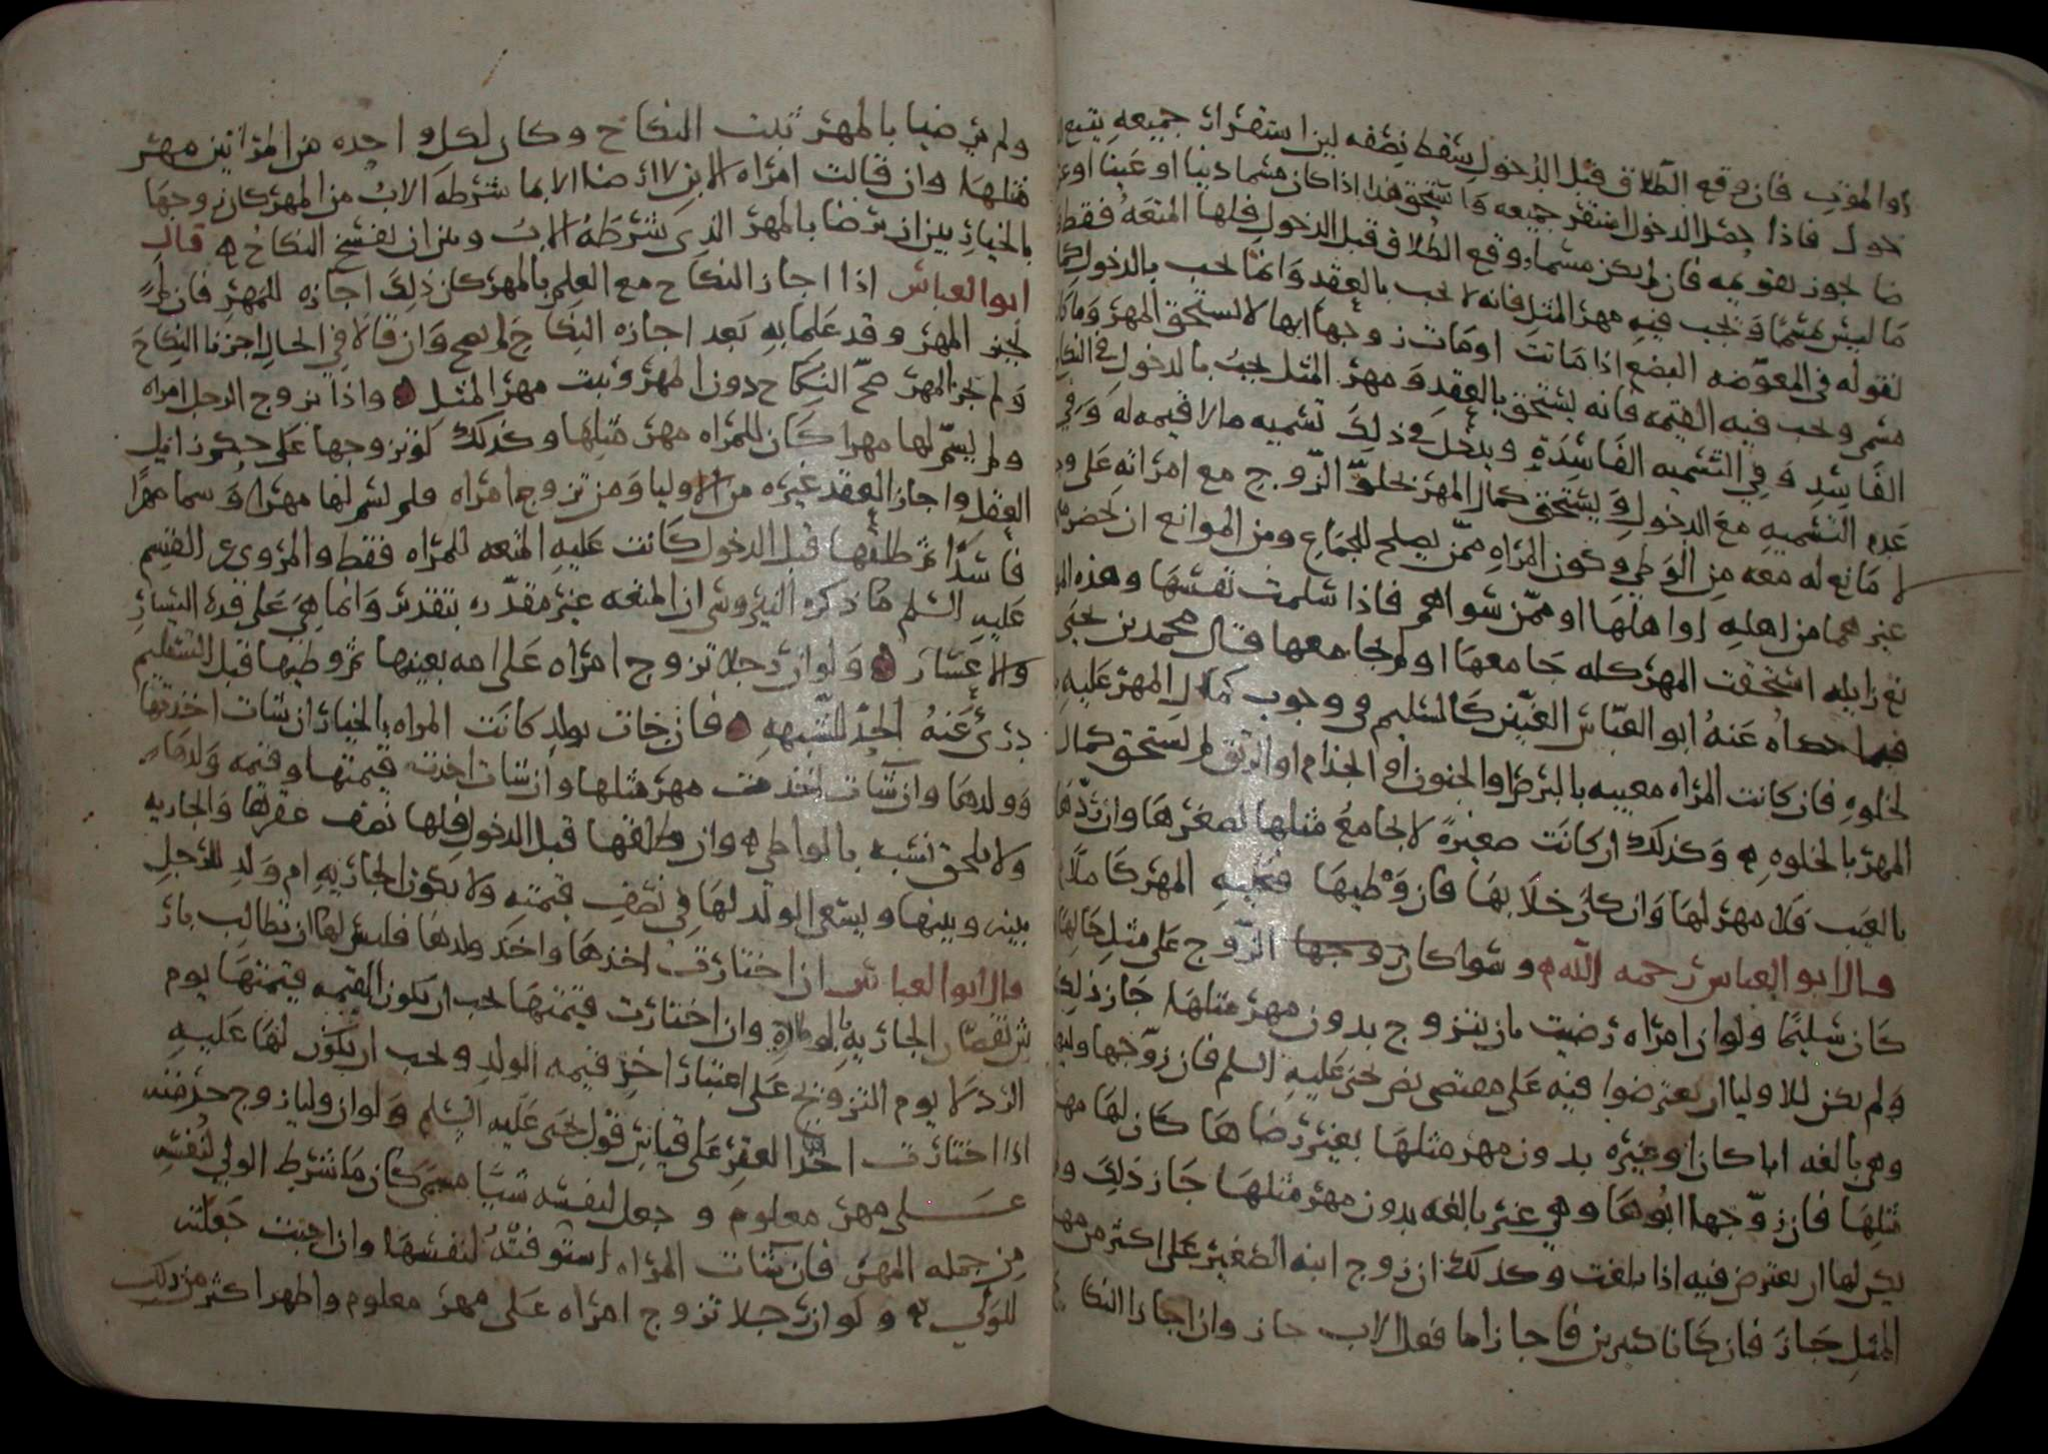 او الموت فان وقع الطلاق قبل الدخول سقط نصفه لان استقرار جميعه يتبع
خول فاذا حصل الدخول استقر جميعه وما يستحق هذا اذا كان مسما دينا او عينا او
ضا يجوز تقويمه فان لم يكن مسما ووقع الطلاق قبل الدخول فلها المتعه فقط
ما ليس بمسما ويجب فيه مهر المثل فانه لا يجب بالعقد وانما يجب بالدخول
لقوله في المعوضه البضع اذا ماتت او مات زوجها انها لا تستحق المهر وما
مسمى ويجب فيه القيمه فانه يستحق بالعقد ومهر المثل يجب بالدخول في النكاح
الفاسد وفي التسميه الفاسدة ويدخل في ذلك تسميه ما لا قيمه له وفي
عدم التسميه مع الدخول ويستحق كمال المهر بخلو الزوج مع امراته على
لا مانع له معه من الوطي وكون المراه ممن يصلح للجماع ومن الموانع ان
غيرهما من اهله او اهلها او ممن سواهم فاذا سلمت نفسها وهذه
نع زايله استحقت المهر كله جامعها او لم يجامعها قال محمد بن يحيى
فيما حكاه عنه ابو العباس العنين كالسليم في وجوب كمال المهر عليه
لخلوه فان كانت المراه معيبه بالبرص او الجنون او الجذام او الرتق لم تستحق كمال
المهر بالخلوه وكذلك ان كانت صغيرة لا يجامع مثلها لصغرها وان ردها
بالعيب فلا مهر لها وان كان خلا بها فان وطيها فعليه المهر كاملا
قال ابو العباس رحمه الله وسوا كان زوجها الزوج على مثل حالها
كان سليما ولو ان امراه رضيت بان تتزوج بدون مهر مثلها جاز ذلك
ولم يكن للاوليا ان يعترضوا فيه على مقتضى نص يحيى عليه السلم فان زوجها وليها
وهي بالغه ابا كان او غيره بدون مهر مثلها بغير رضاها كان لها مهر
مثلها فان زوجها ابوها وهي غير بالغه بدون مهر مثلها جاز ذلك ولم
يكن لها ان تعترض فيه اذا بلغت وكذلك ان زوج ابنه الصغير على اكثر من مهر
المثل جاز فان كانا كبيرين فاجازا ما فعل الاب جاز وان اجازا النكاح
ولم يرضيا بالمهر ثبت النكاح وكان لكل واحده من المراتين مهر
مثلها وان قالت امراه الابن لا ارضا الا بما شرطه الاب من المهر كان زوجها
بالخيار بين ان يرضا بالمهر الذي شرطه الاب وبين ان يفسخ النكاح قال
ابو العباس اذا اجاز النكاح مع العلم بالمهر كان ذلك اجازه للمهر فان لم
يجز المهر وقد علما به بعد اجازه النكاح لم يصح وان قالا في الحال اجزنا النكاح
ولم نجز المهر صح النكاح دون المهر وثبت مهر المثل واذا تزوج الرجل امراه
ولم يسم لها مهرا كان للمراه مهر مثلها وكذلك لو تزوجها على حكم زايل
العقل واجاز العقد غيره من الاوليا ومن تزوج امراه ولم يسم لها مهرا وسما مهرا
فاسدا ثم طلقها قبل الدخول كانت عليه المتعه للمراه فقط والمروي عن القسم
عليه السلم ما ذكره النيروسي ان المتعه غير مقدره بتقدير وانما هي على قدر اليسار
والاعسار ولو ان رجلا تزوج امراه على امه بعينها ثم وطيها قبل التسليم
دري عنه الحد للشبهه فان جات بولد كانت المراه بالخيار ان شات اخذتها
وولدها وان شات اخذت مهر مثلها وان شات اخذت قيمتها وقيمه ولدها
ولا يلحق نسبه بالواطي وان طلقها قبل الدخول فلها نصف عقرها والجاريه
بينه وبينها ويسعى الولد لها في نصف قيمته ولا تكون الجاريه ام ولد للرجل
قال ابو العباس ان اختارت اخذها واخذ ولدها فليس لها ان تطالب بار
ش نقصان الجاريه بالولاده وان اختارت قيمتها يجب ان تكون القيمه قيمتها يوم
الرد لا يوم التزويج على اعتبار اخذ قيمه الولد ويجب ان يكون لها عليه
اذا اختارت اخذ العقر على قياس قول يحيى عليه السلم ولو ان وليا زوج حرمته
على مهر معلوم وجعل لنفسه شيا مسمى كان ما شرط الولي لنفسه
من جمله المهر فان شات المراه استوفته لنفسها وان احبت جعلته
للولي ولو ان رجلا تزوج امراه على مهر معلوم واظهرا اكثر من ذلك